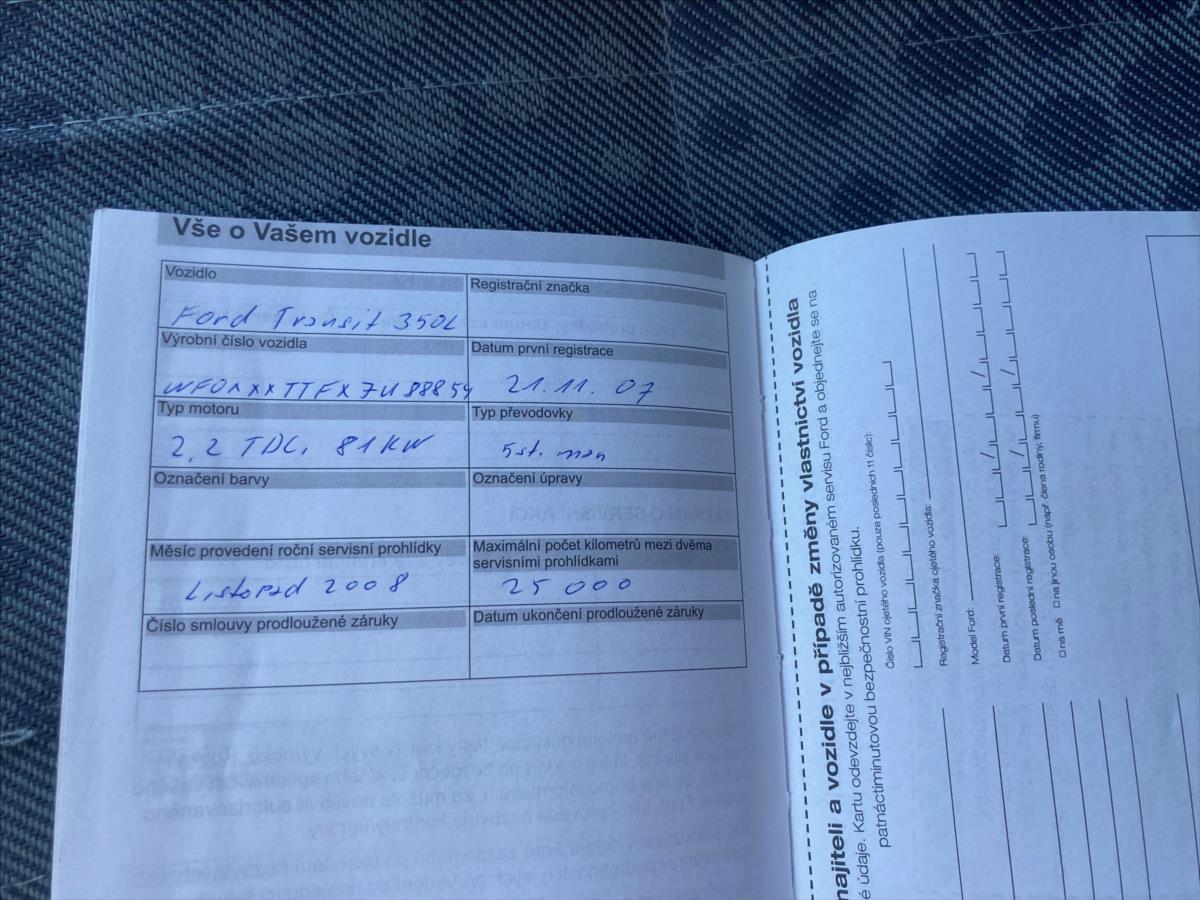 Vše o Vašem vozidle
Vozidlo
Registrační značka
Ford Transit 350L
Výrobní číslo vozidla
Datum první registrace
WF0AXXTTFX7U88854
21.11.07
Typ motoru
Typ převodovky
2,2 TDCi 81KW
5st. man
Označení barvy
Označení úpravy
Měsíc provedení roční servisní prohlídky
Maximální počet kilometrů mezi dvěma
servisními prohlídkami
Listopad 2008
25 000
Číslo smlouvy prodloužené záruky
Datum ukončení prodloužené záruky
majiteli a vozidle v případě změny vlastnictví vozidla
é údaje. Kartu odevzdejte v nejbližším autorizovaném servisu Ford a objednejte se na
patnáctiminutovou bezpečnostní prohlídku.
Číslo VIN ojetého vozidla (pouze posledních 11 čísel):
Registrační značka ojetého vozidla:
Model Ford:
Datum první registrace:
Datum poslední registrace:
na mě na jinou osobu (např. člena rodiny, firmu)